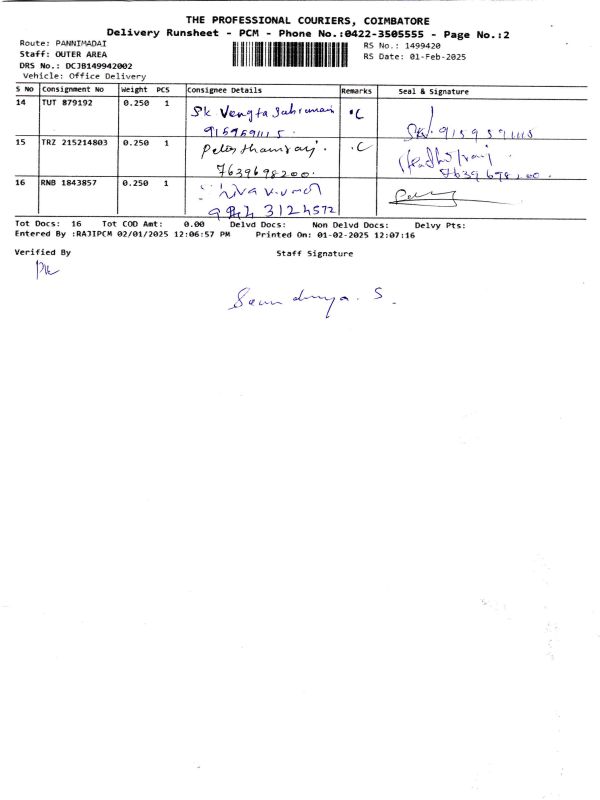 THE PROFESSIONAL COURIERS, COIMBATORE
Delivery Runsheet - PCM - Phone No.:0422-3505555 - Page No.:2
Route: PANNIMADAI
Staff: OUTER AREA
DRS No.: DCJB149942002
Vehicle: Office Delivery
RS No.: 1499420
RS Date: 01-Feb-2025
S No Consignment No Weight PCS Consignee Details Remarks Seal & Signature
14 TUT 879192 0.250 1 Sk C
15 TRZ 215214803 0.250 1 C
7639698200. 7639 698200.
16 RNB 1843857 0.250 1
Tot Docs: 16 Tot COD Amt: 0.00 Delvd Docs: Non Delvd Docs: Delvy Pts:
Entered By :RAJIPCM 02/01/2025 12:06:57 PM Printed On: 01-02-2025 12:07:16
Verified By Staff Signature